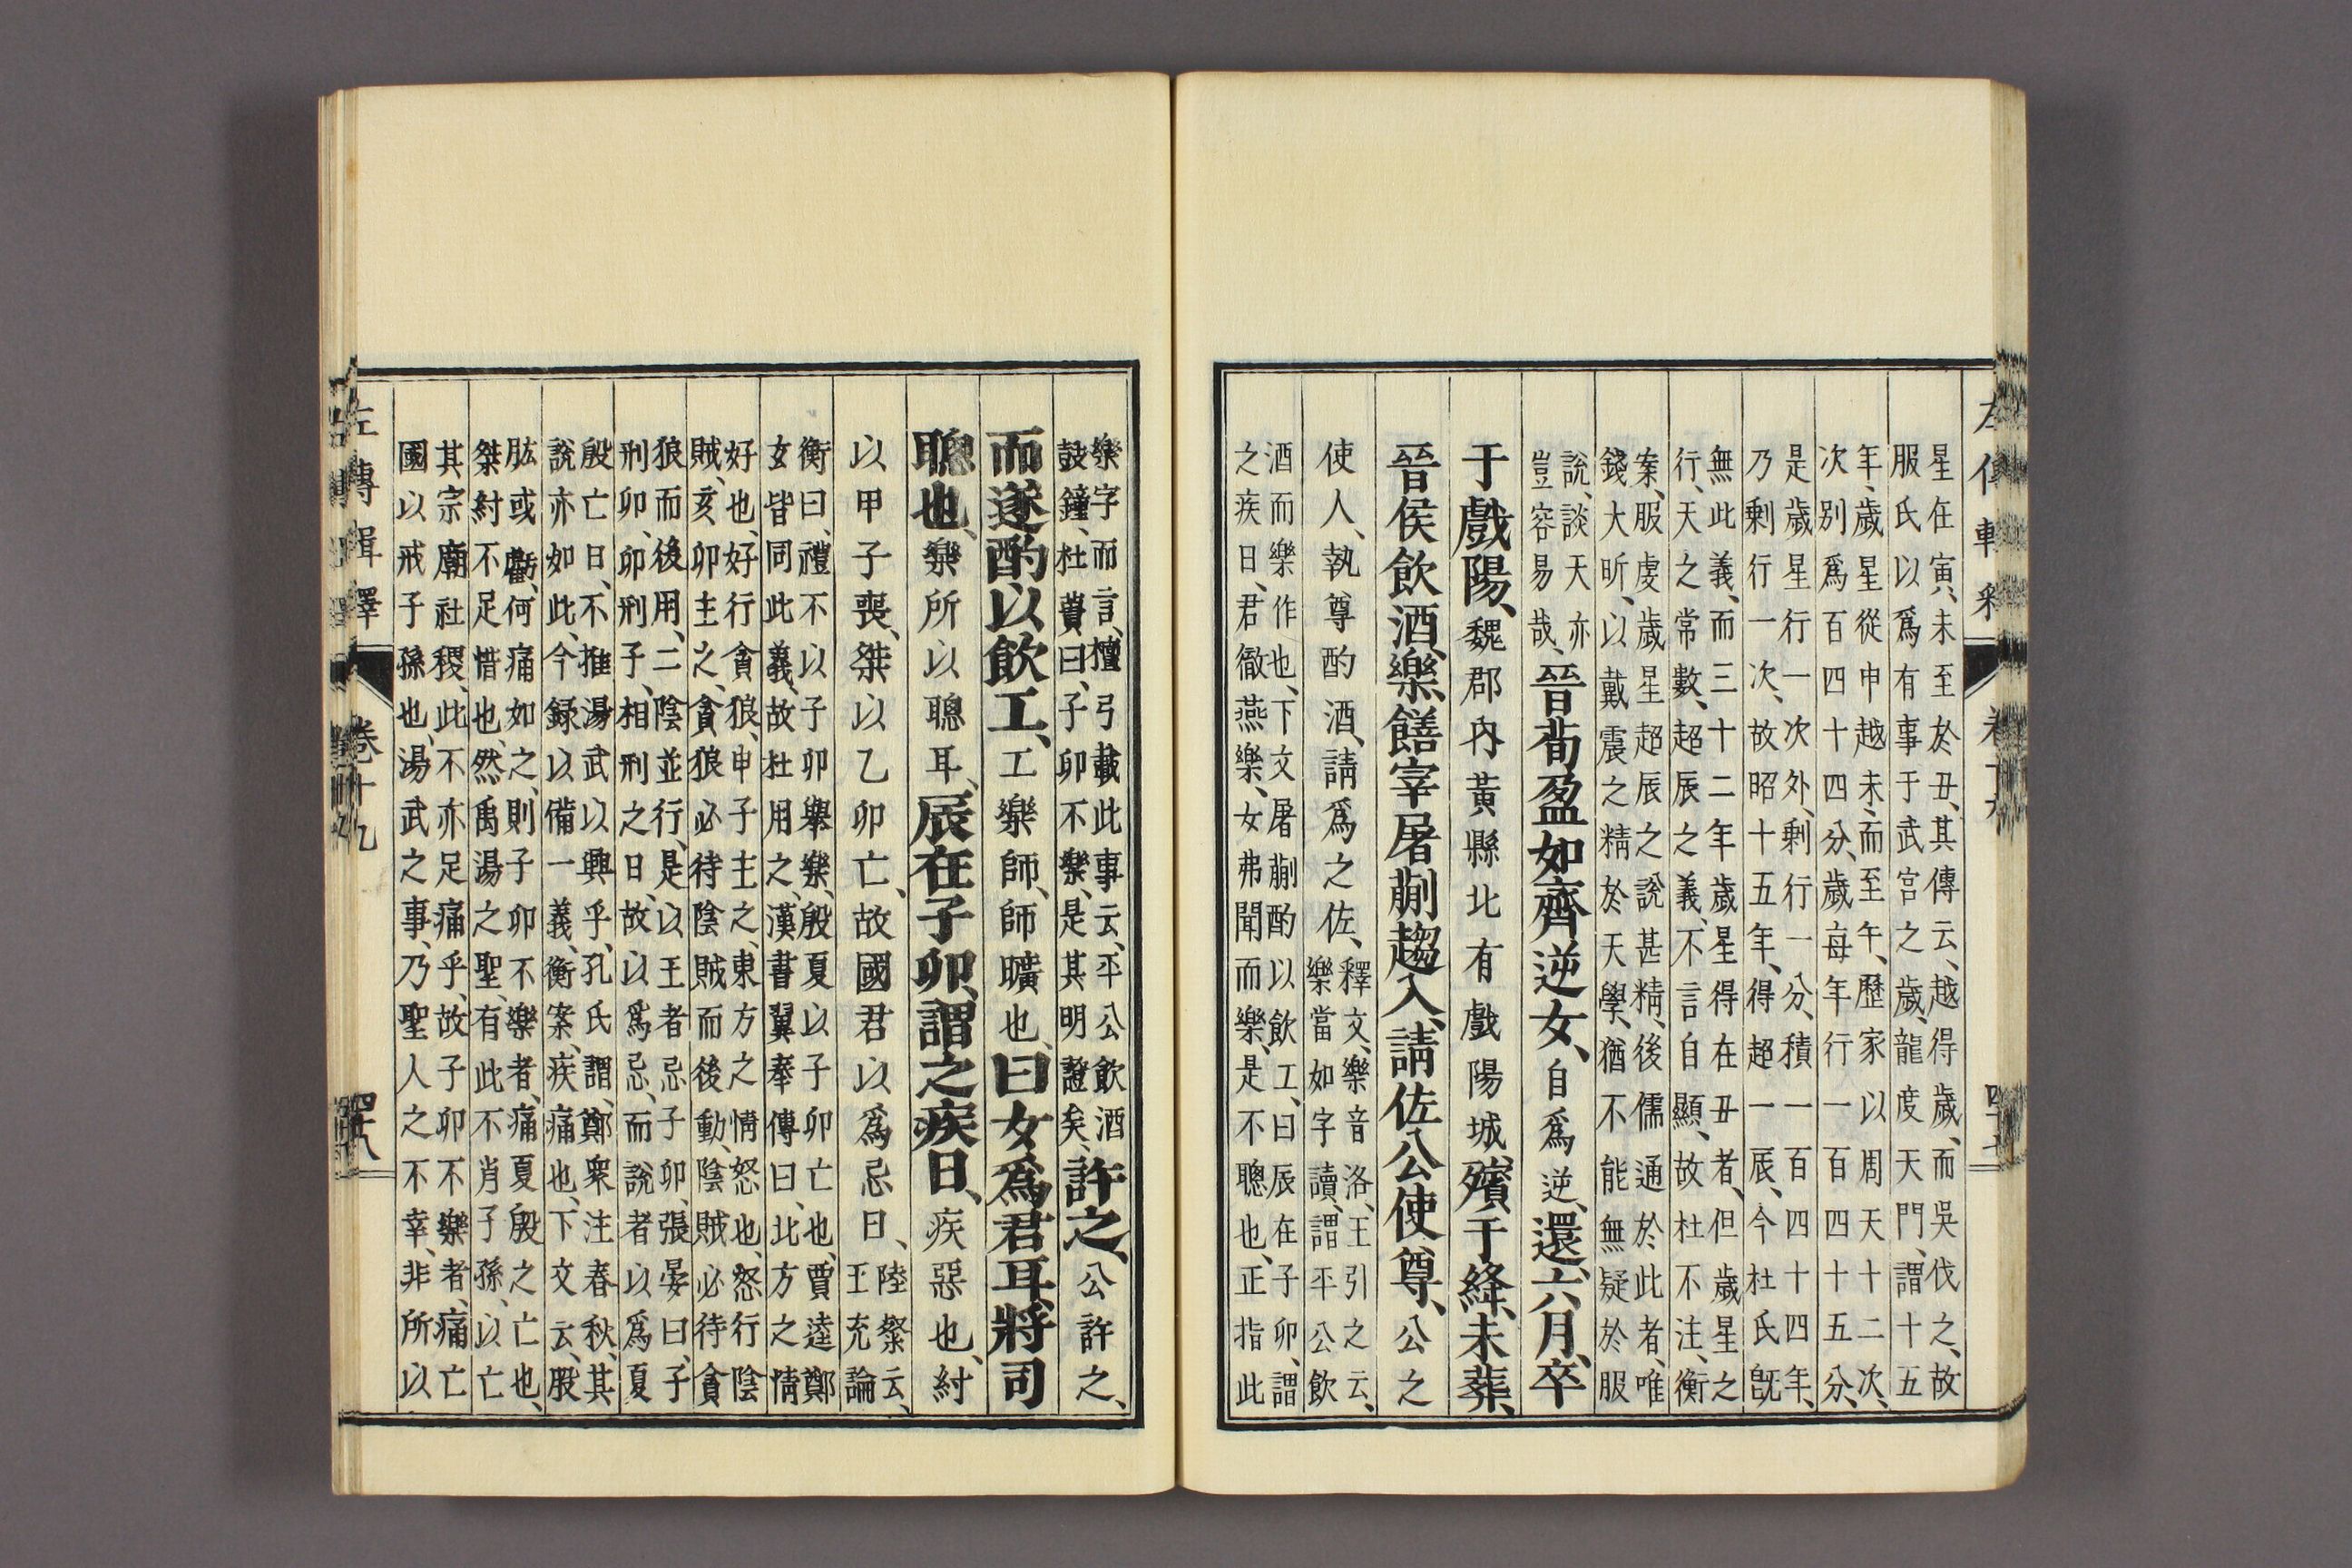 星在寅、未至於丑、其傳云、越得歲、而吳伐之、故
服氏以爲有事于武宮之歲、龍度天門、謂十五
年、歲星從申越未、而至午、歷家以周天十二次、
次別爲百四十四分、歲每年行一百四十五分、
是歲星行一次外、剩行一分、積一百四十四年、
乃剩行一次、故昭十五年、得超一辰、今杜氏既
無此義、而三十二年歲星得在丑者、但歲星之
行、天之常數、超辰之義、不言自顯、故杜不注、衡
案、服虔歲星超辰之說甚精、後儒通於此者、唯
錢大昕、以戴震之精於天學、猶不能無疑於服
說、談天亦
豈容易哉、
晉荀盈如齊逆女、自爲逆、還、六月、卒
于戲陽、魏郡內黃縣北有戲陽城、殯于絳、未葬、
晉侯飲酒樂、膳宰屠蒯趨入、請佐公使尊、公之
使人、執尊酌酒、請爲之佐、
釋文、樂音洛、王引之云、
樂當如字讀、謂平公飲
酒而樂作也、下文屠蒯酌以飲工、曰辰在子卯、謂
之疾日、君徹燕樂、女弗聞而樂、是不聰也、正指此
左傳輯釋 卷十九 四十八
樂字而言、檀弓載此事云、平公飲酒
鼓鐘、杜蕢曰、子卯不樂、是其明證矣、
許之、公許之、
而遂酌以飲工、工樂師、師曠也、曰女爲君耳、將司
聰也、樂所以聰耳、辰在子卯、謂之疾日、疾惡也、紂
以甲子喪、桀以乙卯亡、故國君以爲忌日、
陸粲云、
王充論
衡曰、禮不以子卯舉樂、殷夏以子卯亡也、賈逵鄭
玄皆同此義、故杜用之、漢書翼奉傳曰、北方之情
好也、好行貪狼、申子主之、東方之情怒也、怒行陰
賊、亥卯主之、貪狼必待陰賊而後動、陰賊必待貪
狼而後用、二陰並行、是以王者忌子卯、張晏曰、子
刑卯、卯刑子、相刑之日、故以爲忌、而說者以爲夏
殷亡日、不推湯武以興乎、孔氏謂、鄭衆注春秋、其
說亦如此、今録以備一義、衡案、疾痛也、下文云、股
肱或虧、何痛如之、則子卯不樂者、痛夏殷之亡也、
桀紂不足惜也、然禹湯之聖、有此不肖子孫、以亡
其宗廟社稷、此不亦足痛乎、故子卯不樂者、痛亡
國以戒子孫也、湯武之事、乃聖人之不幸、非所以